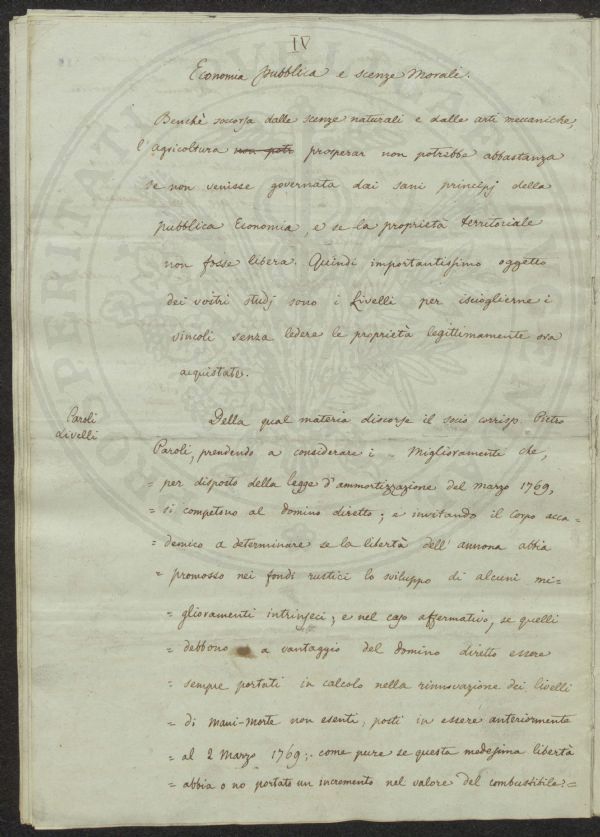 IV
Economia pubblica e scenze Morali.
Benchè soccorsa dalle scenze naturali e dalle arti meccaniche,
l'agricoltura non potr prosperar non potrebbe abbastanza
se non venisse governata dai sani principj della
pubblica Economia, e se la proprietà territoriale
non fosse libera. Quindi importantissimo oggetto
dei vostri studj sono i Livelli per isciogliernei
vincoli senza ledere le proprietà legittimamente ora
acquistate.
Paroli
Livelli
Della qual materia discorse il socio corrisp. Pietro
Paroli, prendendo a considerare i = Miglioramenti che,
= per disposto della legge d'ammortizzazione del marzo 1769,
= si competono al domino diretto; e invitando il Corpo acca=
= demico a determinare se la libertà dell'annona abbia
= promosso nei fondi rustici lo sviluppo di alcuni mi=
= glioramenti intrinseci; e nel caso affermativo, se quelli
= debbono a vantaggio del domino diretto essere
= sempre portati in calcolo nella rinnovazione dei livelli
= di mani-morte non esenti, posti in essere anteriormente
= al 2 Marzo 1769; come pure se questa medesima libertà
= abbia o no portato un incremento nel valore del combustibile?=
PROSPERITATI